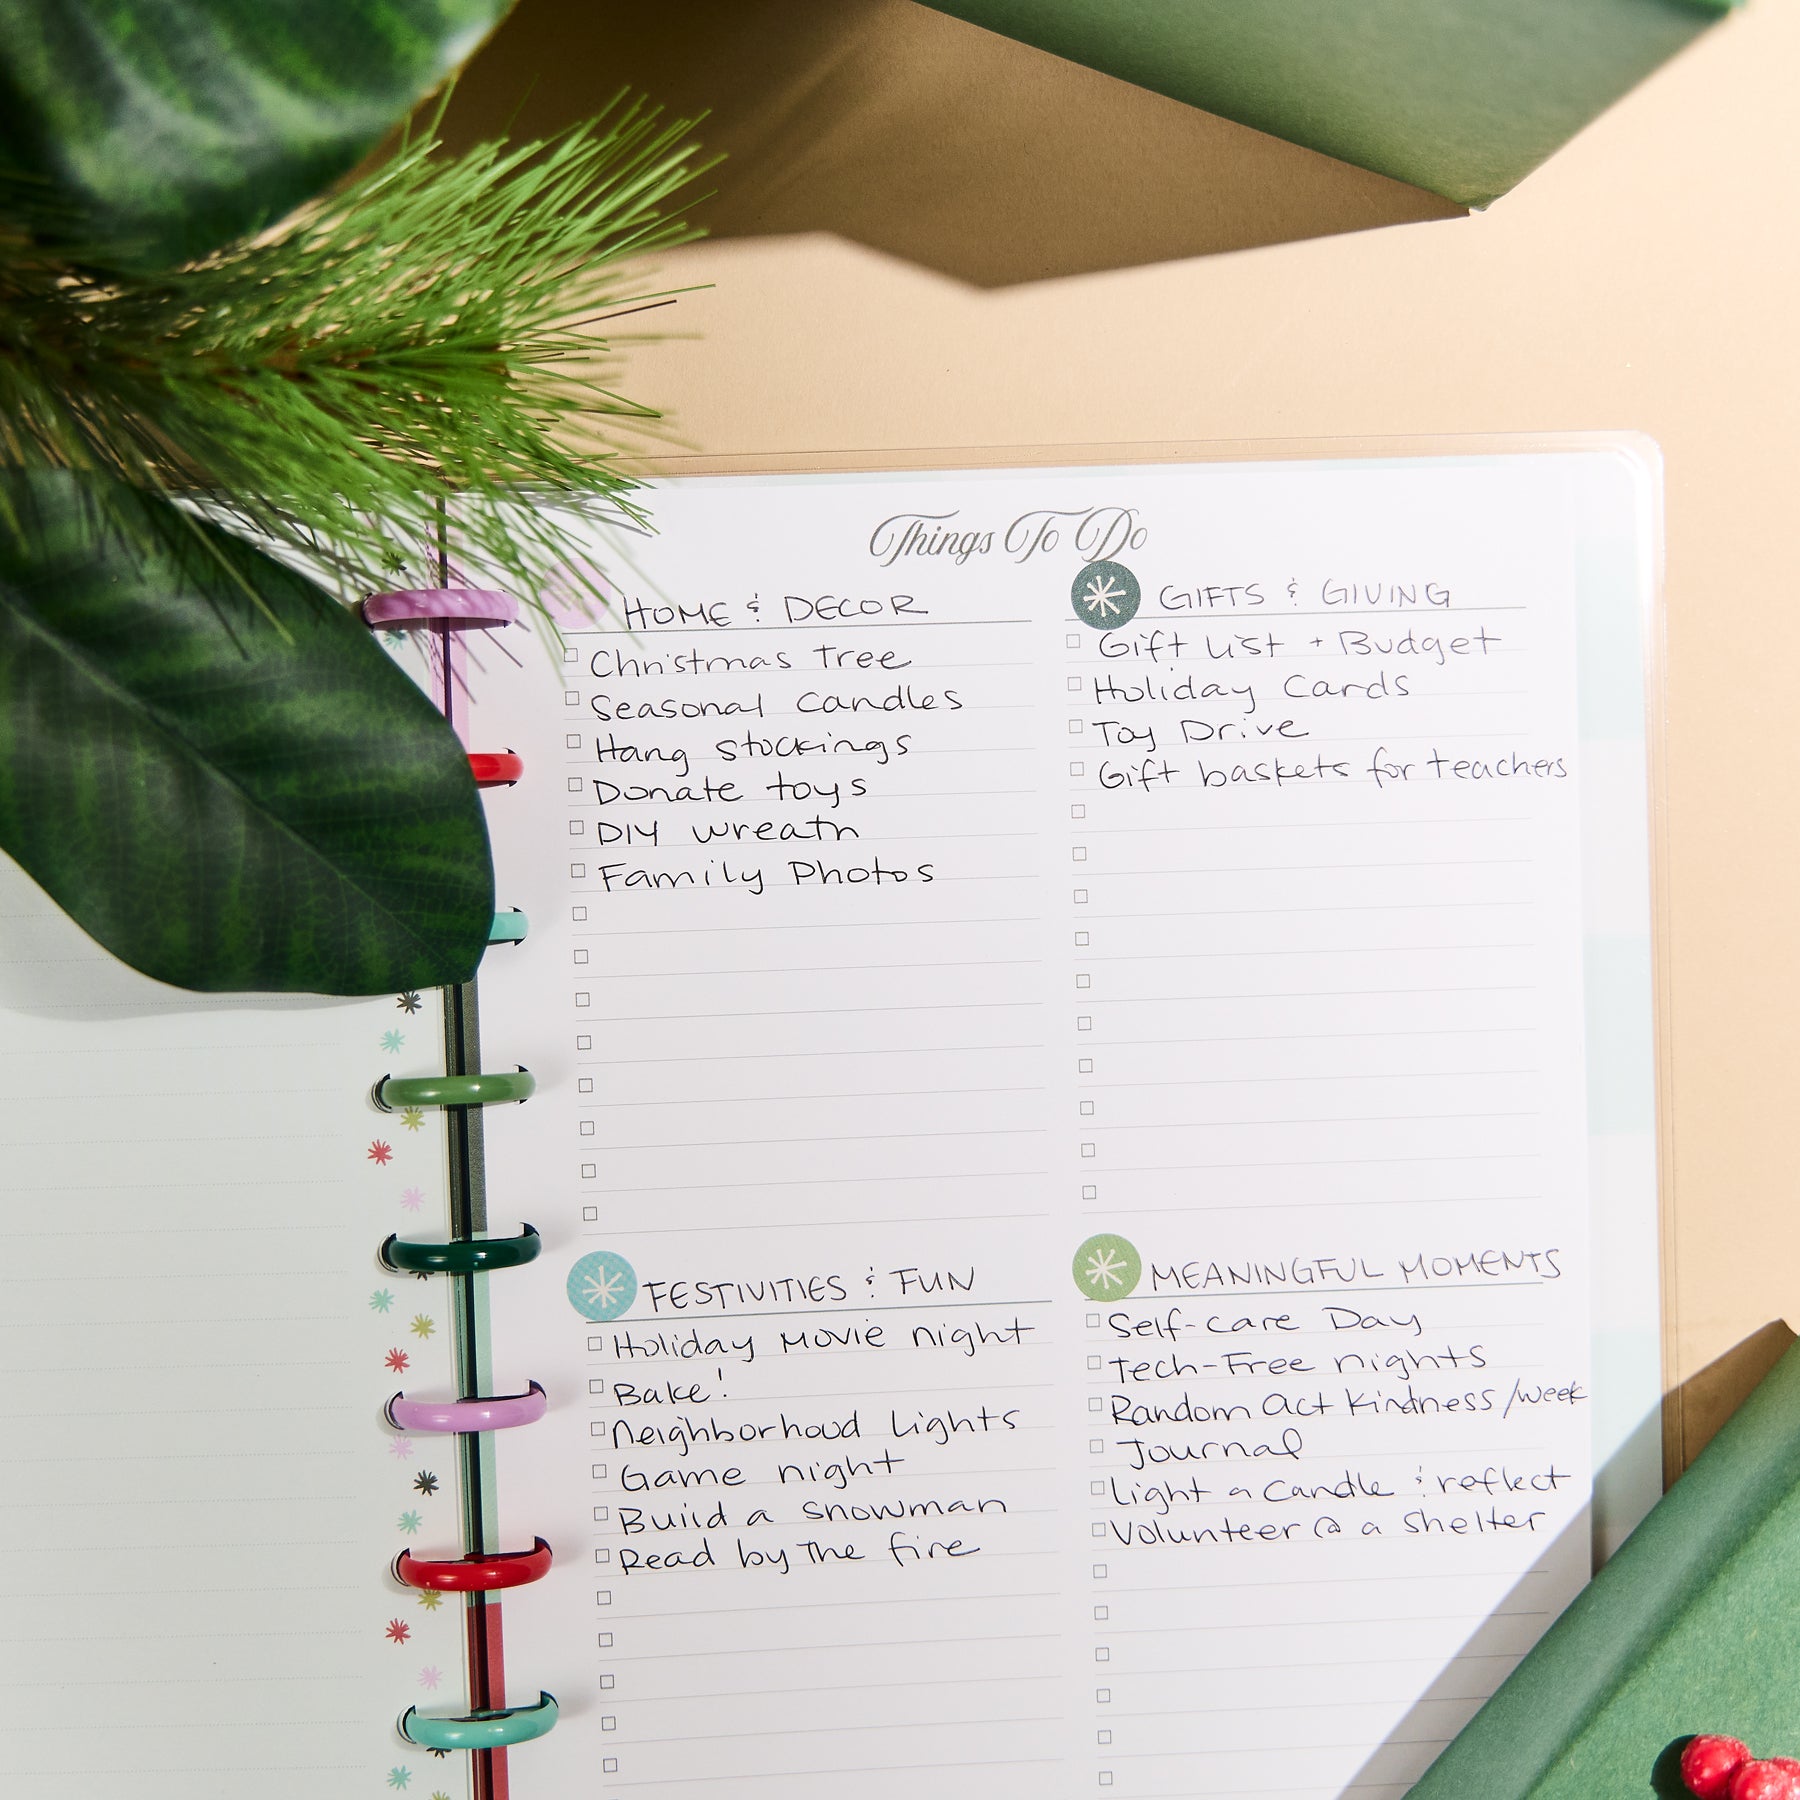 Things To Do
HOME & DECOR
Christmas Tree
Seasonal Candles
Hang stockings
Donate toys
DIY wreath
Family Photos
GIFTS & GIVING
Gift List + Budget
Holiday Cards
Toy Drive
Gift baskets for teachers
FESTIVITIES & FUN
Holiday Movie night
Bake!
Neighborhood Lights
Game night
Build a snowman
Read by the fire
MEANINGFUL MOMENTS
Self-care Day
Tech-Free nights
Random Act Kindness/week
Journal
Light a Candle & reflect
Volunteer @ a shelter